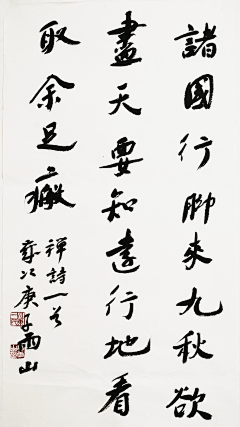 諸國行脚來九秋欲
盡天要知遠行地看
取余足瘢
禪詩一首
歲次庚子雨山